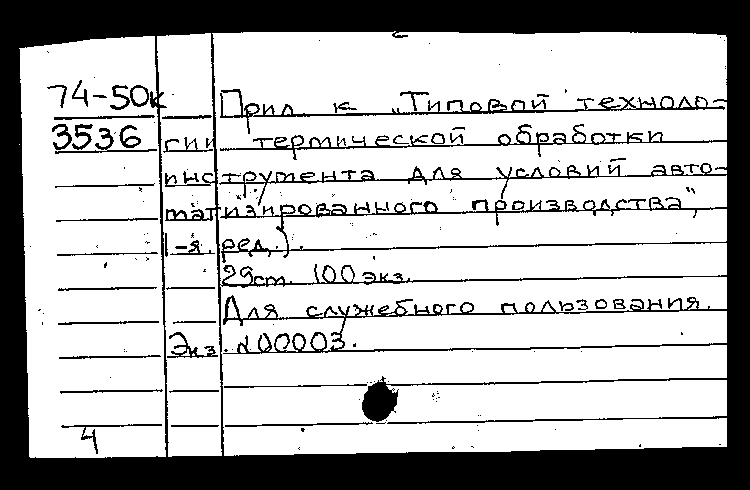 74-50к Прил к „Типовой техноло-
3536 гии термической обработки
инструмента для условий авто-
матизированного производства",
1-я ред.).
29ст. 100 экз.
Для служебного пользования.
Экз. №00003.
4